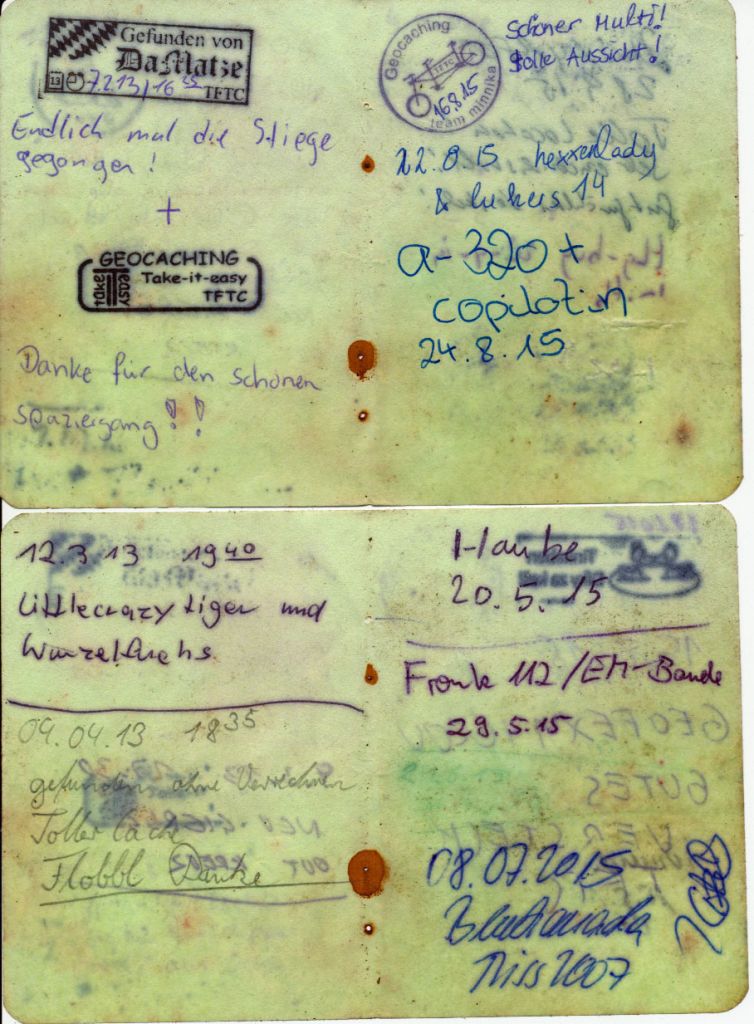 Gefunden von
DaMatze
7.2.13/16
TFTC
Endlich mal die Stiege
gegangen!
+
GEOCACHING
take it easy
Take-it-easy
TFTC
Danke für den schönen
spaziergang!!
Geocaching
TFTC
16.8.15
team minnika
Schöner Multi!
Tolle Aussicht!
22.8.15 hexxenlady
& lukus 14
a-320 +
copilotin
24.8.15
12.3.13 19 40
Littlecrazytiger und
Wurzelfuchs
09.04.13 18 35
gefunden ohne Verrechnen
Toller Cache
Flobbl Danke
Haube
20.5.15
Frank 112/EM-Bande
29.5.15
08.07.2015
Miss2007